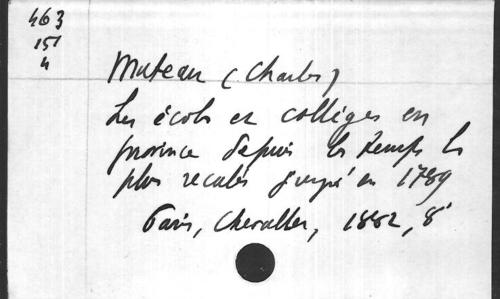 463
151
4
Muteau (Charles)
Les écoles et collèges en
province depuis les temps les
plus reculés jusqu'en 1789
Paris, Chevalier, 1882, 8°